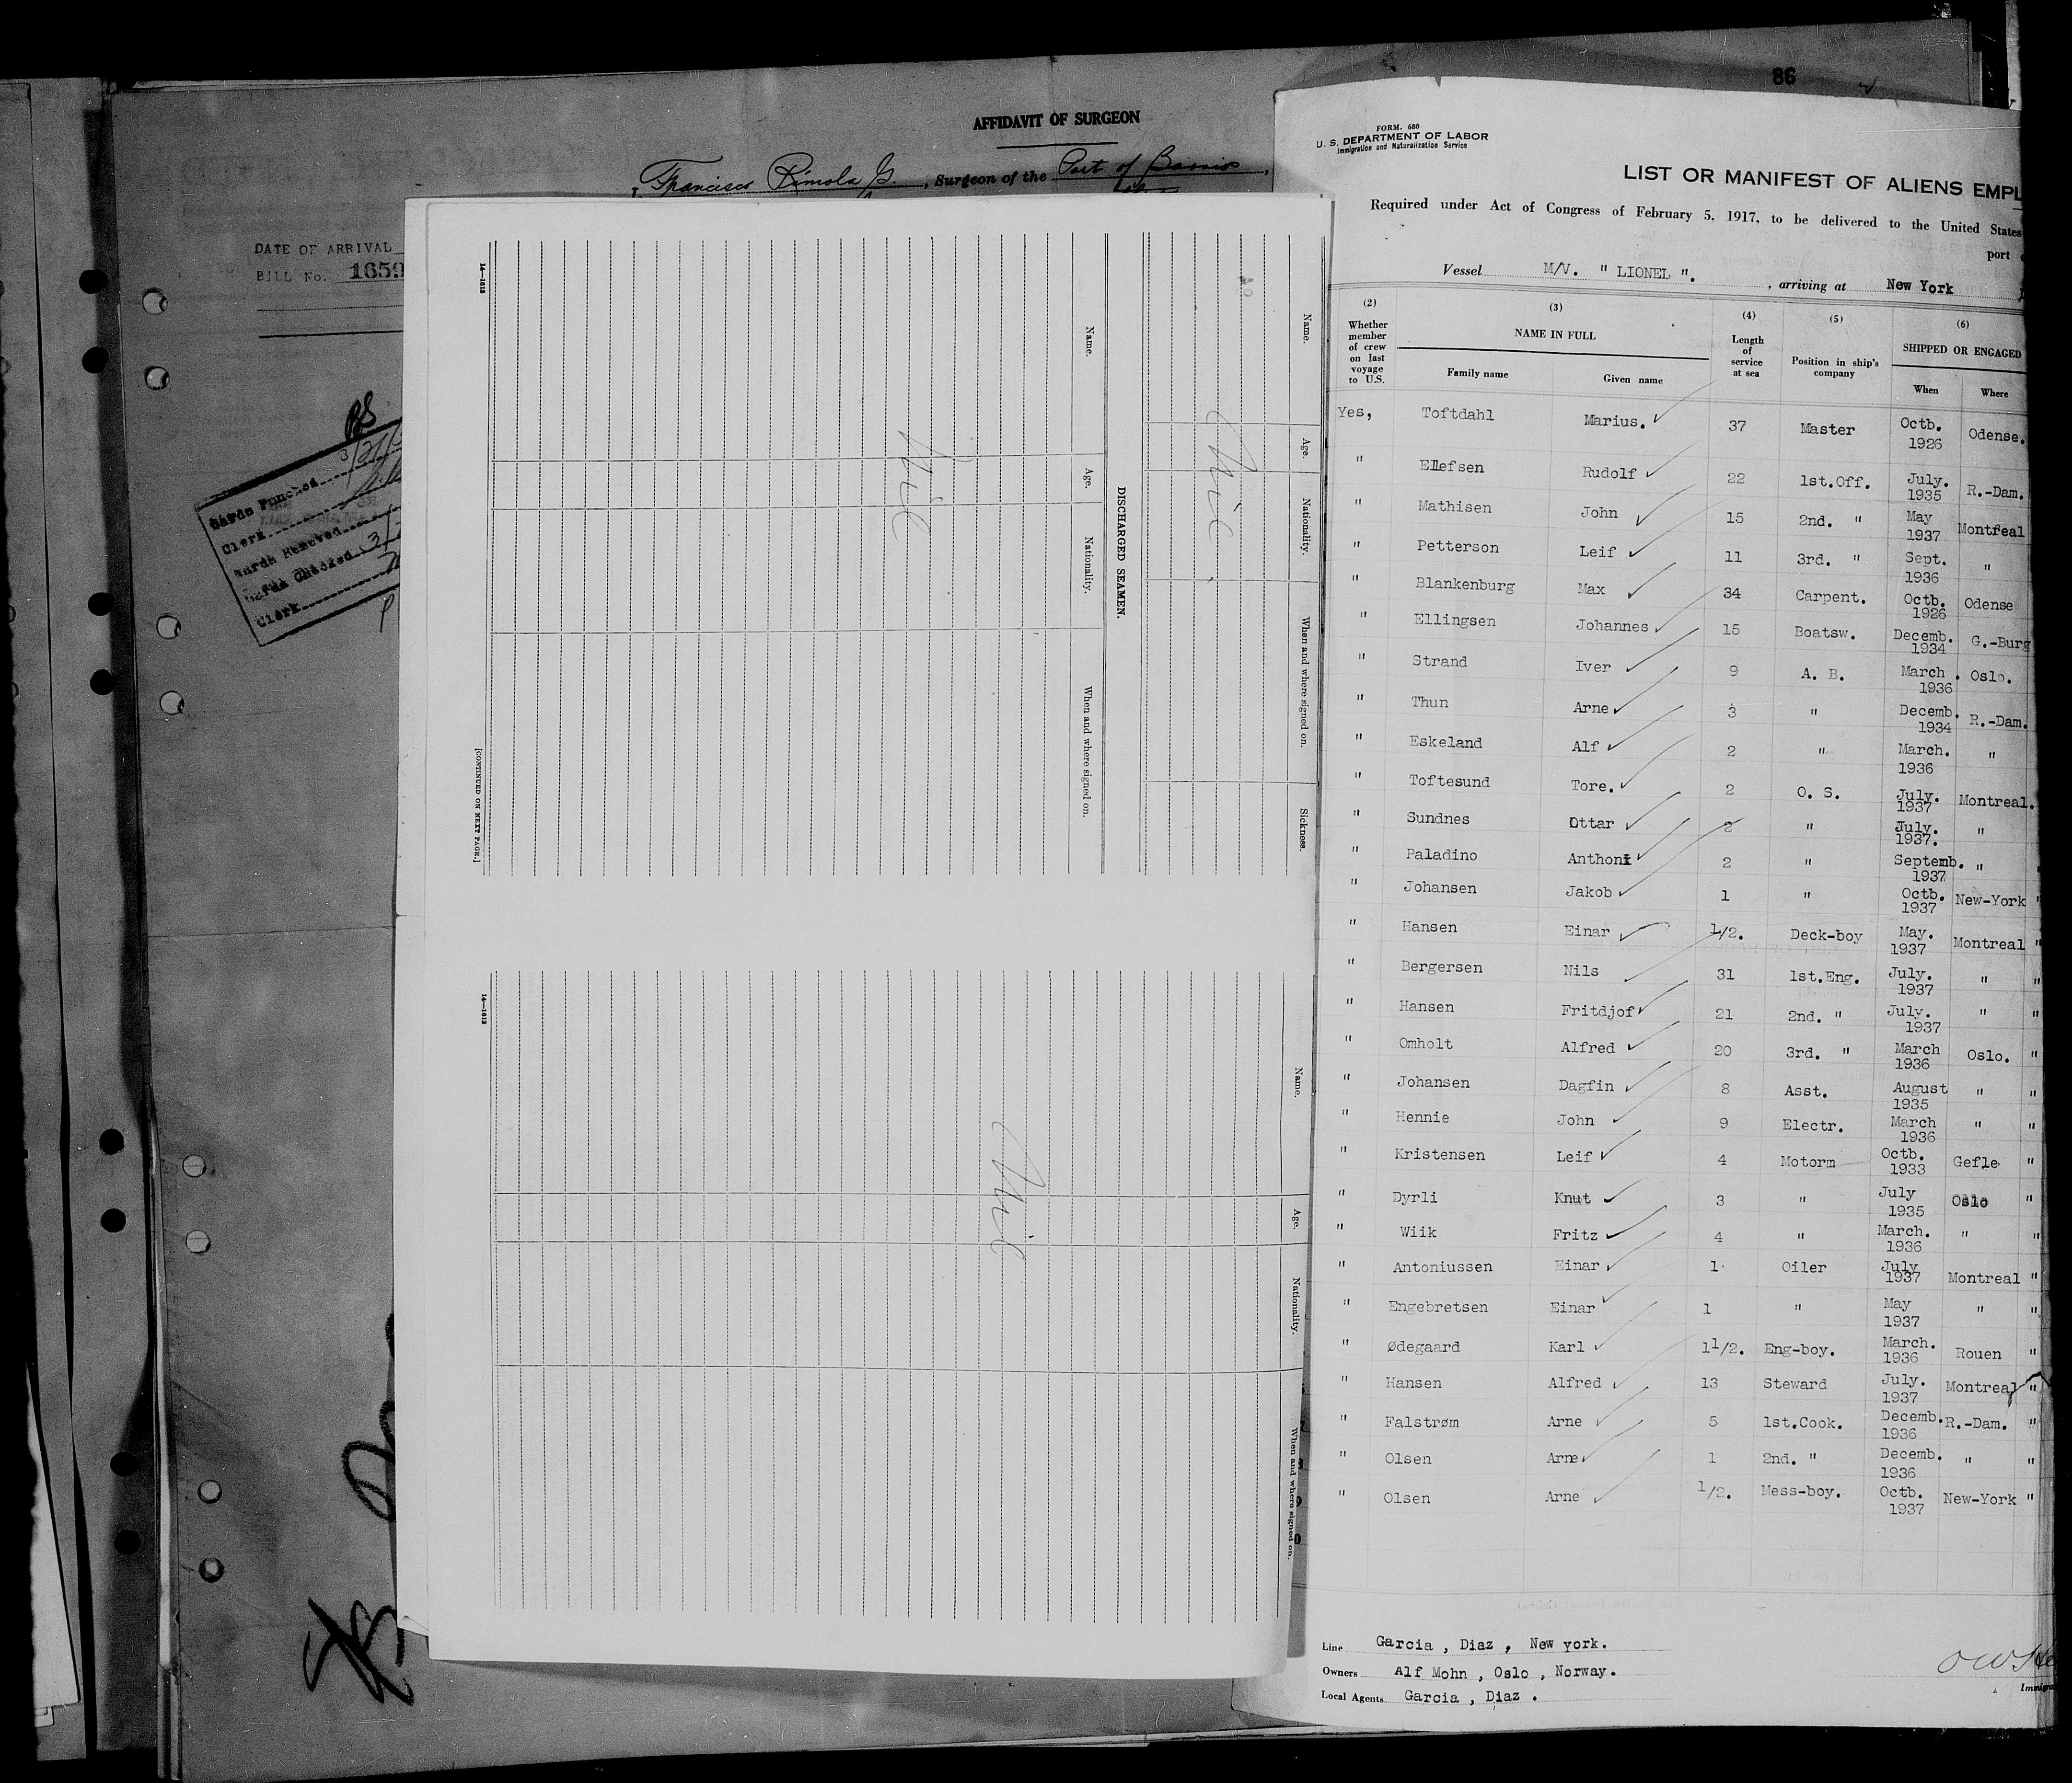 86
AFFIDAVIT OF SURGEON
I, Francisco Rimola G., Surgeon of the Port of Barrios,
DATE OF ARRIVAL
BILL No. 1659
Cards Punched 3/21/
Clerk
Cards Removed
Cards Checked 3/
Clerk
Name. Age. Nationality. When and where signed on. Sickness.
Nil
DISCHARGED SEAMEN.
Name. Age. Nationality. When and where signed on.
Nil
14—1613
[CONTINUED ON NEXT PAGE.]
Name. Age. Nationality. When and where signed on.
Nil
14—1613
FORM. 680
U. S. DEPARTMENT OF LABOR
Immigration and Naturalization Service
LIST OR MANIFEST OF ALIENS EMPL
Required under Act of Congress of February 5, 1917, to be delivered to the United States
port
Vessel M/V. " LIONEL ". , arriving at New York
(2) (3) (4) (5) (6)
Whether member of crew on last voyage to U.S. NAME IN FULL Length of service at sea Position in ship's company SHIPPED OR ENGAGED
Family name Given name When Where
Yes, Toftdahl Marius. 37 Master Octb. 1926 Odense.
" Ellefsen Rudolf 22 1st.Off. July. 1935 R.-Dam.
" Mathisen John 15 2nd. " May 1937 Montreal
" Petterson Leif 11 3rd. " Sept. 1936 "
" Blankenburg Max 34 Carpent. Octb. 1926 Odense
" Ellingsen Johannes 15 Boatsw. Decemb. 1934 G.-Burg
" Strand Iver 9 A. B. March . 1936 Oslo.
" Thun Arne 3 " Decemb. 1934 R.-Dam.
" Eskeland Alf 2 " March. 1936 "
" Toftesund Tore. 2 O. S. July. 1937 Montreal.
" Sundnes Ottar 2 " July. 1937. "
" Paladino Anthoni 2 " Septemb. 1937 "
" Johansen Jakob 1 " Octb. 1937 New-York "
" Hansen Einar 1/2. Deck-boy May. 1937 Montreal "
" Bergersen Nils 31 1st.Eng. July. 1937 " "
" Hansen Fritdjof 21 2nd. " July. 1937 " "
" Omholt Alfred 20 3rd. " March 1936 Oslo. "
" Johansen Dagfin 8 Asst. August 1935 " "
" Hennie John 9 Electr. March 1936 " "
" Kristensen Leif 4 Motorm Octb. 1933 Gefle "
" Dyrli Knut 3 " July 1935 Oslo "
" Wiik Fritz 4 " March. 1936 " "
" Antoniussen Einar 1 Oiler July 1937 Montreal "
" Engebretsen Einar 1 " May 1937 " "
" Ødegaard Karl 1 1/2. Eng-boy. March. 1936 Rouen "
" Hansen Alfred 13 Steward July. 1937 Montreal "
" Falstrøm Arne 5 1st.Cook. Decemb. 1936 R.-Dam. "
" Olsen Arne 1 2nd. " Decemb. 1936 " "
" Olsen Arne 1/2. Mess-boy. Octb. 1937 New-York "
Line Garcia , Diaz , New york.
Owners Alf Mohn , Oslo , Norway.
Local Agents Garcia , Diaz .
Immigra